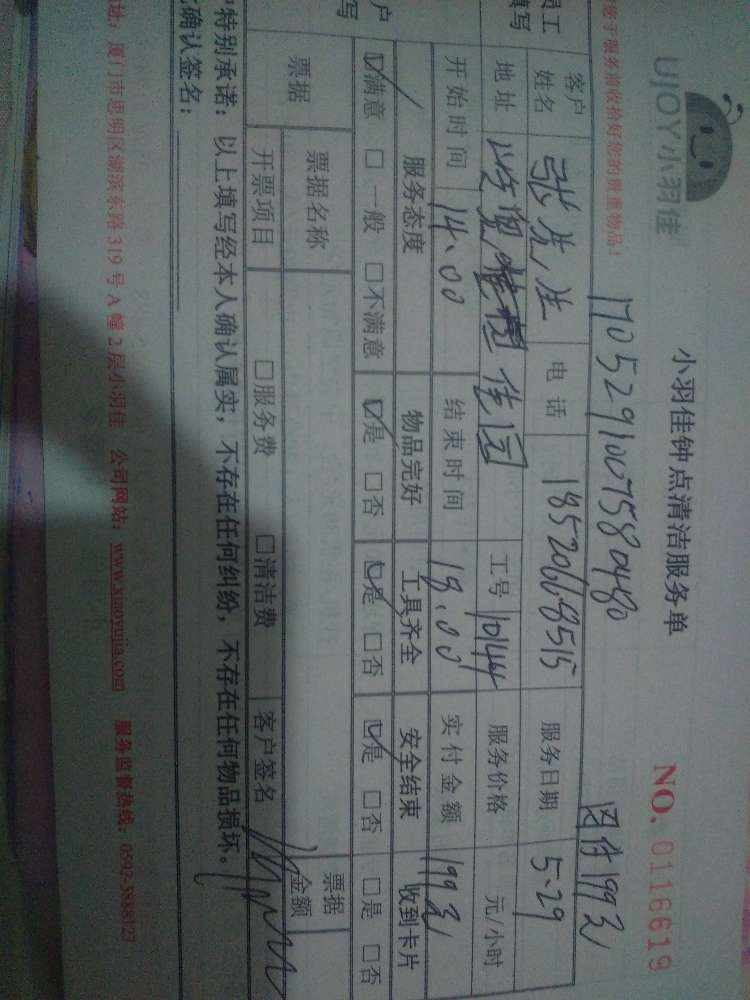 UJOY小羽佳
小羽佳钟点清洁服务单
NO. 0116619
于服务前收拾好您的贵重物品！
1705291007580480
199元
员工
填写
客户姓名 张先生 电话 18520668515 服务日期 5.29
地址 佳园 工号 10144 服务价格 元/小时
开始时间 14.00 结束时间 18.00 实付金额 199元
户
写
服务态度 物品完好 工具齐全 安全结束 收到卡片
☑满意 □一般 □不满意 ☑是 □否 ☑是 □否 ☑是 □否 □是 □否
票据 票据名称 票据金额
开票项目 □服务费 □清洁费 客户签名
特别承诺：以上填写经本人确认属实，不存在任何纠纷，不存在任何物品损坏。
确认签名：
址：厦门市思明区湖滨东路319号A幢2层小羽佳 公司网站：www.xiaoyujia.com 服务监督热线：0592-5888123